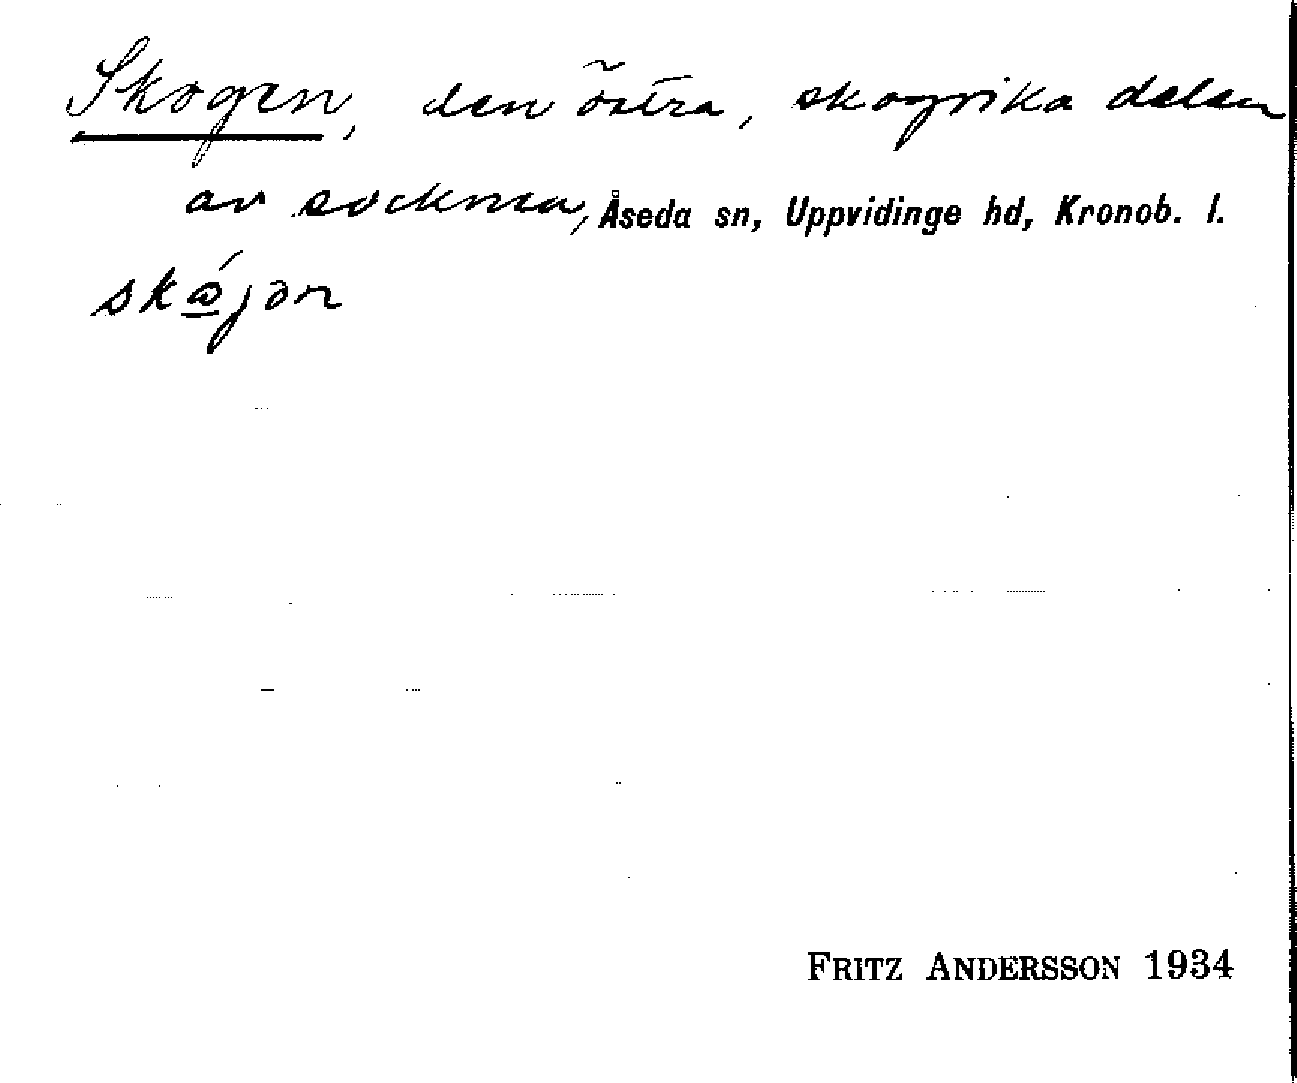 Skogen, den östra, skogrika delen
av socknen, Åseda sn, Uppvidinge hd, Kronob. l.
FRITZ ANDERSSON 1934